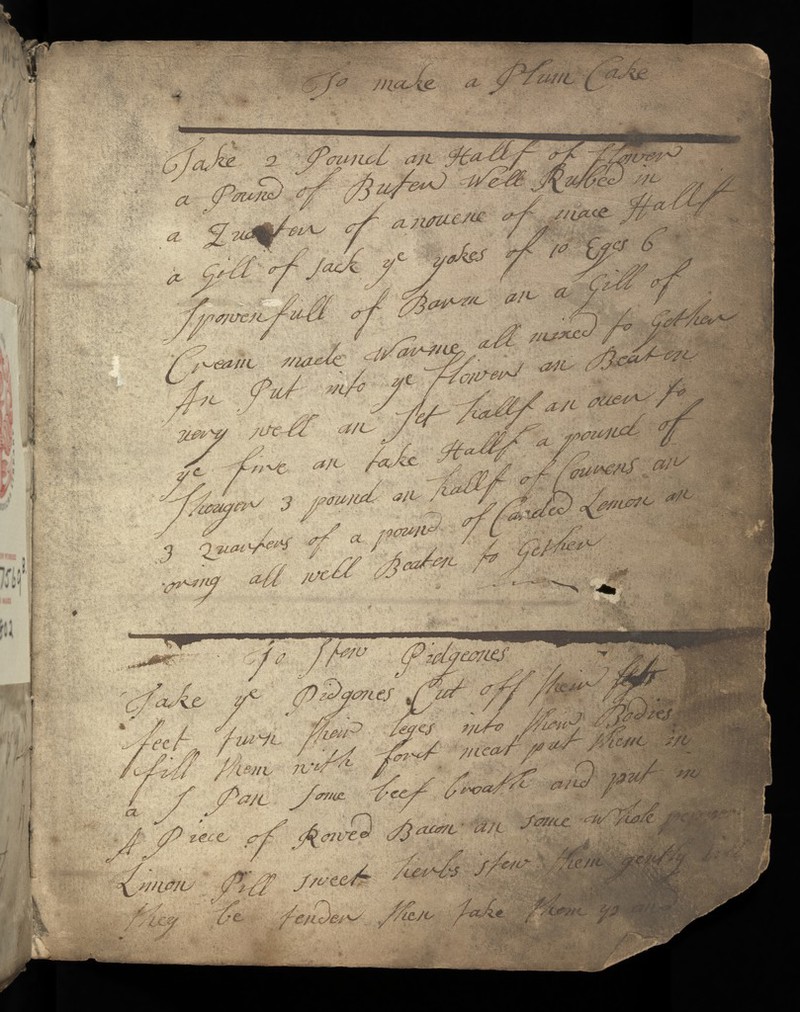 To make a Plum Cake
Take 2 Pound an Hallf of flower
a Pound of Buter Well Rubed in
a Quarter of anouene of mace Hallf
a Gill of Sack ye yokes of 10 Eges 6
Spowenfull of Barm an a Gill of
Cream made Warme all mixed to Gether
An Put into ye flowers an Beaten
very well an Set hallf an ouer to
ye fire an take Hallf a pound of
Shouger 3 pound an hallf of Courens an
3 Quarters of a pound of Canded Lemon an
oring all well Beaten to Gether
To Stew Pidgeones
Take ye Pidgones Cut off their
feet turn their leges into their Bodies
fill them with forct meat put them in
a S Pan Some beef broath and put in
A Piece of Rowed Bacon an some whole
Limon Pill sweet herbs stew them gently
they be tender then take them up and
7569